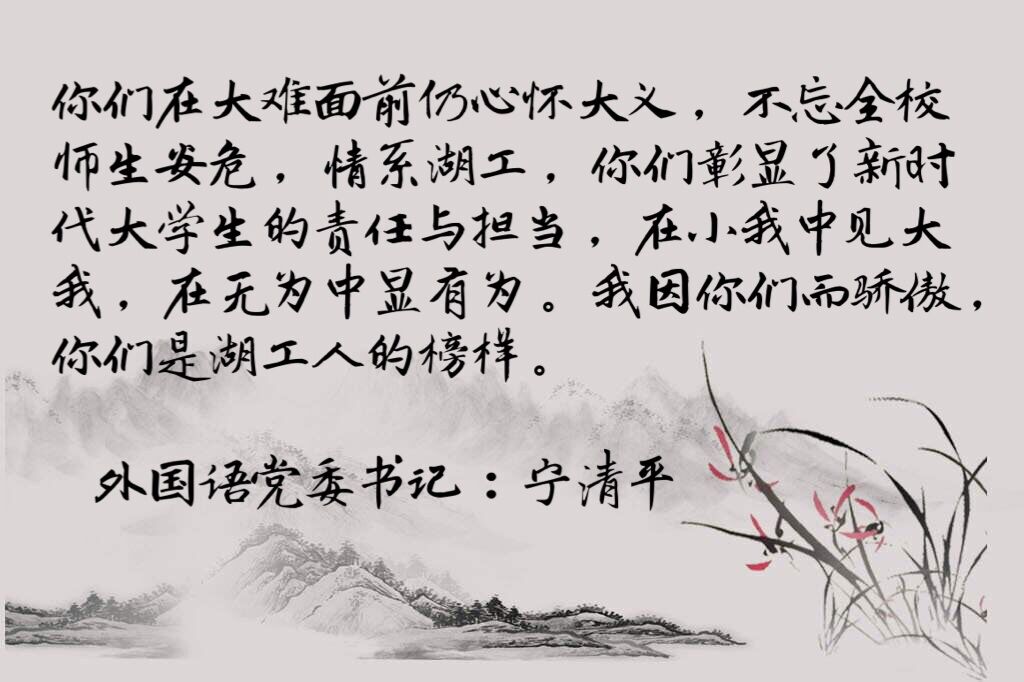 你们在大难面前仍心怀大义，不忘全校
师生安危，情系湖工，你们彰显了新时
代大学生的责任与担当，在小我中见大
我，在无为中显有为。我因你们而骄傲，
你们是湖工人的榜样。
外国语党委书记：宁清平